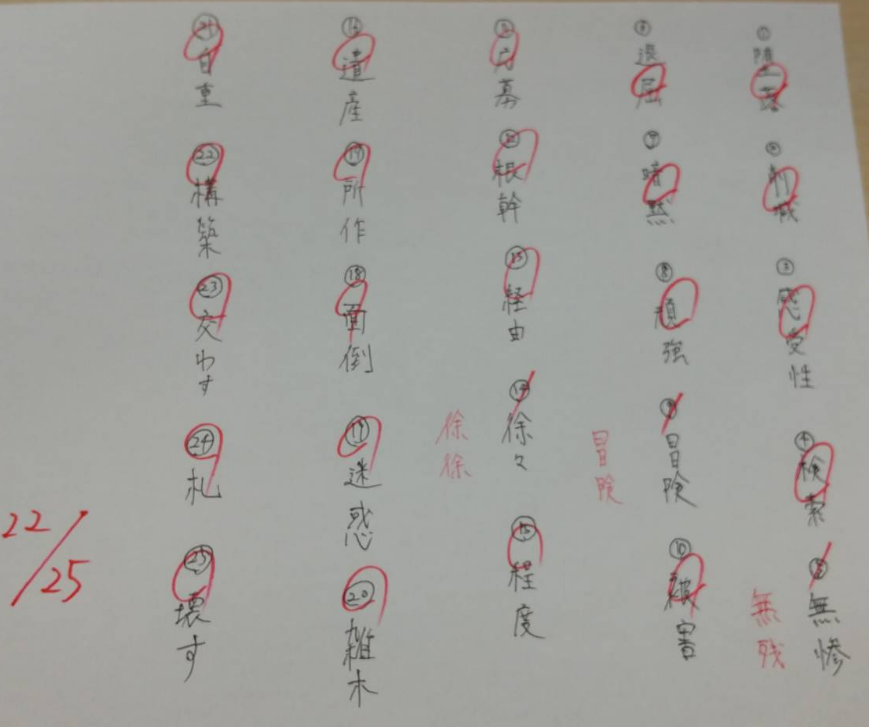 ① 堕落
② 削減
③ 感受性
④ 検索
⑤ 無惨
無残
⑥ 退屈
⑦ 暗黙
⑧ 頑強
⑨ 冒険
冒険
⑩ 被害
幕
⑫ 根幹
⑬ 経由
⑭ 徐々
徐徐
⑮ 程度
⑯ 遺産
⑰ 所作
⑱ 面倒
⑲ 迷惑
⑳ 雑木
㉑ 自重
㉒ 構築
㉓ 交わす
㉔ 札
㉕ 壊す
22/25